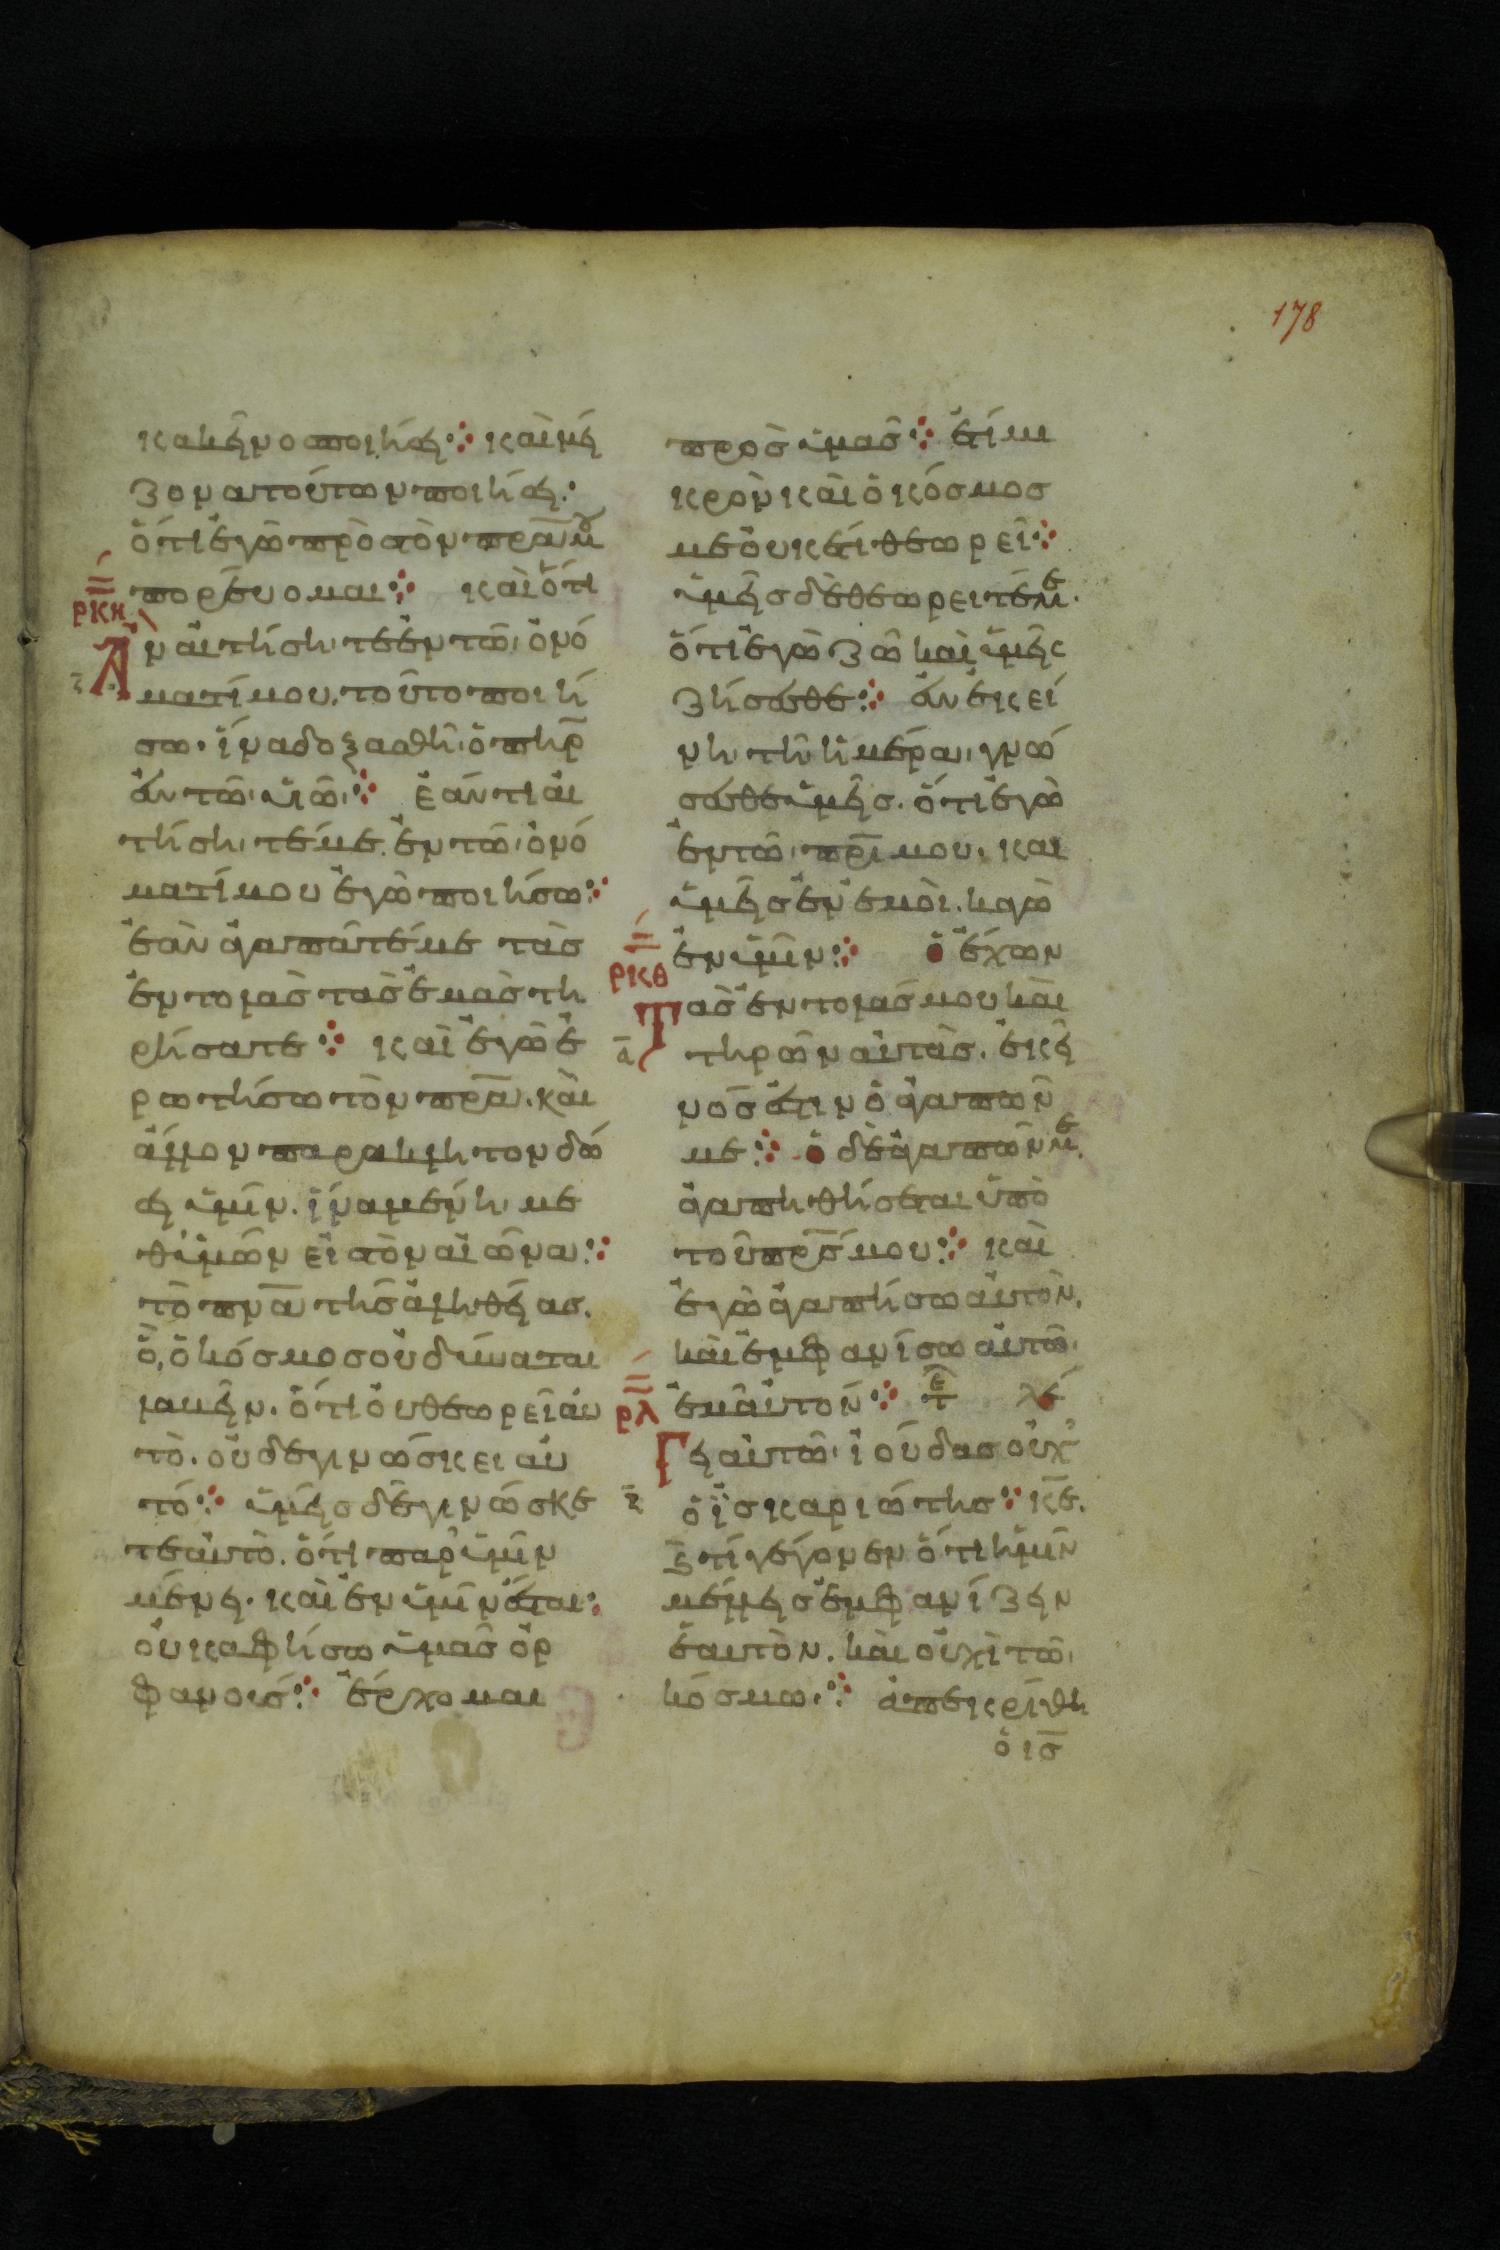 178
κακεῖνο ποιήσει· καὶ μεί
ζονα τούτων ποιήσει·
ὅτι ἐγὼ πρὸς τὸν πρ̅α̅ μου
πορεύομαι· καὶ ὅτι
ρκη
Ἂν αἰτήσητε ἐν τῶ ὀνό
ματί μου, τοῦτο ποιή
σω· ἵνα δοξασθῆ ὁ πη̅ρ̅
ἐν τῶ υἱῶ· ἐάν τι αἰ
τήσητέ με ἐν τῶ ὀνό
ματί μου ἐγὼ ποιήσω·
ἐὰν ἀγαπᾶτέ με τὰς
ἐντολὰς τὰς ἐμὰς τη
ρήσατε· καὶ ἐγὼ ἐ
ρωτήσω τὸν πρ̅α̅. καὶ
ἄλλον παράκλητον δώ
σει ὑμῖν. ἵνα μένη με
θ' ὑμῶν εἰς τὸν αἰῶνα·
τὸ πν̅α̅ τῆς ἀληθείας.
ὃ, ὁ κόσμος οὐ δύναται
λαβεῖν. ὅτι οὐ θεωρεῖ αυ
τὸ. οὐδὲ γινώσκει αὐ
τό· ὑμεῖς δὲ γινώσκε
τε αὐτὸ. ὅτι παρ' ὑμῖν
μένει. καὶ ἐν ὑμῖν ἔσται·
οὐκ αφήσω ὑμᾶς ὀρ
φανούς· ἔρχομαι
πρὸς ὑμᾶς· ἔτι μι
κρὸν καὶ ὁ κόσμος
με οὐκέτι θεωρεῖ·
ὑμεῖς δὲ θεωρειτέ με.
ὅτι ἐγὼ ζῶ καὶ ὑμεῖς
ζήσεσθε· ἐν ἐκεί
νη τῆ ἡμέρα γνώ
σεσθε ὑμεῖς. ὅτι ἐγὼ
ἐν τῶ πρ̅ι̅ μου, και
ὑμεῖς ἐν ἐμοὶ. κἀγὼ
ἐν ὑμῖν· ὁ ἔχων
ρκθ
Τὰς ἐντολάς μου καὶ
α̅
τηρῶν αὐτὰς. ἐκεῖ
νος ἐστιν ὁ ἀγαπῶν
με· ὁ δὲ ἀγαπῶν με.
ἀγαπηθήσεται ὑπὸ
τοῦ πρ̅ς̅ μου· καὶ
ἐγὼ ἀγαπήσω αὐτὸν.
καὶ ἐμφανίσω αὐτῶ
ρλ
ἐμαὐτον· τε λέ
Γει αὐτῶ ἰούδας οὐχ'
ὁ ἰσκαριώτης· κ̅ε̅.
τί γέγονεν ὅτι ἡμῖν
μέλλεις ἐμφανίζειν
σεαυτὸν. καὶ οὐχὶ τῶ
κόσμω· ἀπεκρίθη
ὁ ι̅ς̅